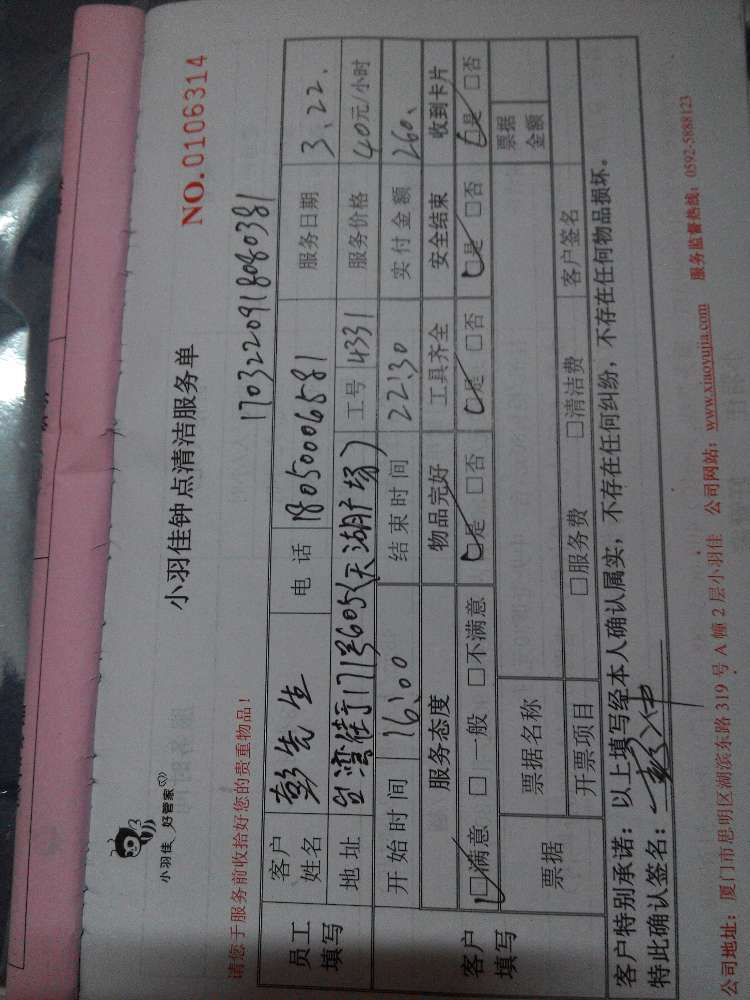 小羽佳 好管家
小羽佳钟点清洁服务单
NO.0106314
请您于服务前收拾好您的贵重物品!
1703220918080381
员工填写
客户姓名 彭先生 电话 18050006581 服务日期 3.22.
地址 台湾街171号605(天湖广场) 工号 4331 服务价格 40元/小时
客户填写
开始时间 16:00 结束时间 22:30 实付金额 260.
服务态度 物品完好 工具齐全 安全结束 收到卡片
☑满意 □一般 □不满意 ☑是 □否 ☑是 □否 ☑是 □否 ☑是 □否
票据 票据名称 票据金额
开票项目 □服务费 □清洁费 客户签名
客户特别承诺:以上填写经本人确认属实,不存在任何纠纷,不存在任何物品损坏。
特此确认签名:
公司地址:厦门市思明区湖滨东路319号A幢2层小羽佳 公司网站:www.xiaoyujia.com 服务监督热线:0592-5888123